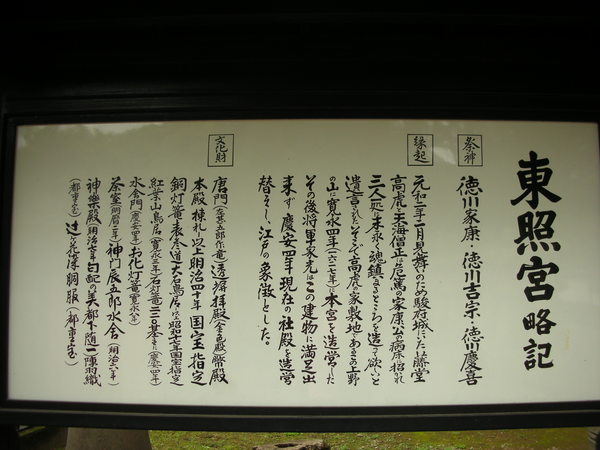 東照宮略記
祭神
徳川家康・徳川吉宗・徳川慶喜
縁起
元和二年二月見舞のため駿府城にいた藤堂
高虎と天海僧正は危篤の家康公の病床に招かれ
三人一処に末永く魂鎮まるところを造って欲しいと
遺言された そこで高虎の家敷地であるこの上野
の山に寛永四年(一六二七年)本宮を造営した
その後将軍家光はこの建物に満足出
来ず慶安四年現在の社殿を造営
替えし、江戸の象徴とした。
文化財
唐門(左甚五郎作竜)透塀 拝殿(金色殿)幣殿
本殿 棟札 以上明治四十年国宝指定
銅灯篭 表参道 大石鳥居 以上昭和十七年国宝指定
紅葉山鳥居(寛永三年)石灯篭二二〇基(慶安四年)
水舎門(慶安四年)お化灯篭(寛永八年)
茶室(明暦二年)神門 辰五郎水舎(明治六年)
神楽殿(明治七年)勾配の美都下随一 陣羽織
(都重宝)辻が花染胴服(都重宝)